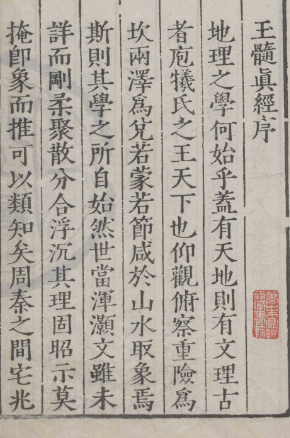 王髓眞經序
地理之學何始乎蓋有天地則有文理古
者庖犧氏之王天下也仰觀俯察重險爲
坎兩澤爲兌若蒙若節咸於山水取象焉
斯則其學之所自始然世當渾灝文雖未
詳而剛柔聚散分合浮沉其理固昭示莫
掩卽象而推可以類知矣周秦之間宅兆